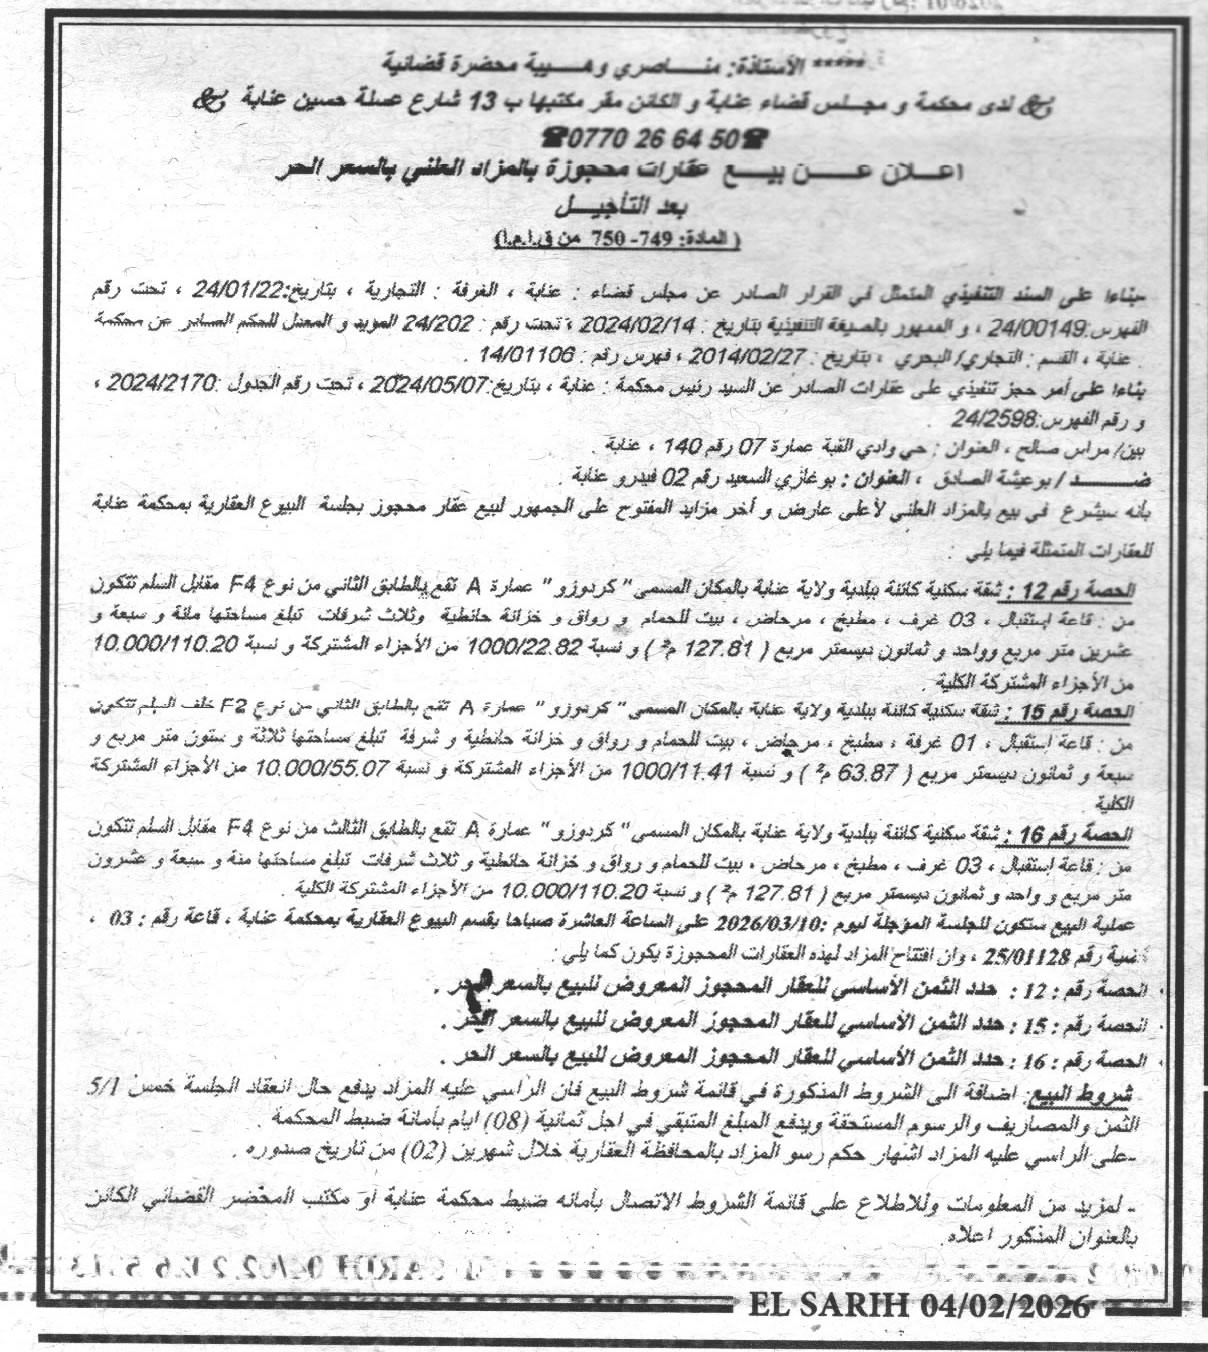 ***** الأستاذة: مناصري وهيبة محضرة قضائية
لدى محكمة و مجلس قضاء عنابة و الكائن مقر مكتبها ب 13 شارع عسلة حسين عنابة
☎0770 26 64 50☎
اعلان عن بيع عقارات محجوزة بالمزاد العلني بالسعر الحر
بعد التأجيل
( المادة: 749- 750 من ق.ا.م.ا)
-بناءا على السند التنفيذي المتمثل في القرار الصادر عن مجلس قضاء : عنابة ، الغرفة : التجارية ، بتاريخ:24/01/22 ، تحت رقم
الفهرس:24/00149 ، و الممهور بالصيغة التنفيذية بتاريخ : 2024/02/14 ، تحت رقم : 24/202 المؤيد و المعدل للحكم الصادر عن محكمة
عنابة ، القسم : التجاري/ البحري ، بتاريخ : 2014/02/27 ، فهرس رقم : 14/01106 .
بناءا على أمر حجز تنفيذي على عقارات الصادر عن السيد رئيس محكمة : عنابة ، بتاريخ:2024/05/07 ، تحت رقم الجدول :2024/2170 ،
و رقم الفهرس:24/2598 .
بين/ مراس صالح ، العنوان : حي وادي القبة عمارة 07 رقم 140 ، عنابة .
ضد / بوعيشة الصادق ، العنوان : بوغازي السعيد رقم 02 فيدرو عنابة .
بأنه سيشرع في بيع بالمزاد العلني لأعلى عارض و أخر مزايد المفتوح على الجمهور لبيع عقار محجوز بجلسة البيوع العقارية بمحكمة عنابة
للعقارات المتمثلة فيما يلي :
الحصة رقم 12 : شقة سكنية كائنة ببلدية ولاية عنابة بالمكان المسمى" كردوزو" عمارة A تقع بالطابق الثاني من نوع F4 مقابل السلم تتكون
من : قاعة إستقبال ، 03 غرف ، مطبخ ، مرحاض ، بيت للحمام و رواق و خزانة حائطية وثلاث شرفات تبلغ مساحتها مائة و سبعة و
عشرين متر مربع وواحد و ثمانون ديسمتر مربع ( 127.81 م² ) و نسبة 1000/22.82 من الأجزاء المشتركة و نسبة 10.000/110.20
من الأجزاء المشتركة الكلية .
الحصة رقم 15 : شقة سكنية كائنة ببلدية ولاية عنابة بالمكان المسمى" كردوزو" عمارة A تقع بالطابق الثاني من نوع F2 خلف السلم تتكون
من : قاعة إستقبال ، 01 غرفة ، مطبخ ، مرحاض ، بيت للحمام و رواق و خزانة حائطية و شرفة تبلغ مساحتها ثلاثة و ستون متر مربع و
سبعة و ثمانون ديسمتر مربع ( 63.87 م² ) و نسبة 1000/11.41 من الأجزاء المشتركة و نسبة 10.000/55.07 من الأجزاء المشتركة
الكلية
الحصة رقم 16 : شقة سكنية كائنة ببلدية ولاية عنابة بالمكان المسمى" كردوزو" عمارة A تقع بالطابق الثالث من نوع F4 مقابل السلم تتكون
من : قاعة إستقبال ، 03 غرف ، مطبخ ، مرحاض ، بيت للحمام و رواق و خزانة حائطية و ثلاث شرفات تبلغ مساحتها مئة و سبعة و عشرون
متر مربع و واحد و ثمانون ديسمتر مربع ( 127.81 م² ) و نسبة 10.000/110.20 من الأجزاء المشتركة الكلية .
عملية البيع ستكون للجلسة المؤجلة ليوم :2026/03/10 على الساعة العاشرة صباحا بقسم البيوع العقارية بمحكمة عنابة ، قاعة رقم : 03 ،
قضية رقم 25/01128 ، وان افتتاح المزاد لهذه العقارات المحجوزة يكون كما يلي :
الحصة رقم : 12 : حدد الثمن الأساسي للعقار المحجوز المعروض للبيع بالسعر الحر .
الحصة رقم : 15 : حدد الثمن الأساسي للعقار المحجوز المعروض للبيع بالسعر الحر .
الحصة رقم : 16 : حدد الثمن الأساسي للعقار المحجوز المعروض للبيع بالسعر الحر .
شروط البيع: اضافة الى الشروط المذكورة في قائمة شروط البيع فان الراسي عليه المزاد يدفع حال انعقاد الجلسة خمس 5/1
الثمن والمصاريف والرسوم المستحقة ويدفع المبلغ المتبقي في اجل ثمانية (08) ايام بأمانة ضبط المحكمة .
-على الراسي عليه المزاد اشهار حكم رسو المزاد بالمحافظة العقارية خلال شهرين (02) من تاريخ صدوره .
- لمزيد من المعلومات وللاطلاع على قائمة الشروط الاتصال بأمانه ضبط محكمة عنابة أو مكتب المحضر القضائي الكائن
بالعنوان المذكور اعلاه.
EL SARIH 04/02/2026